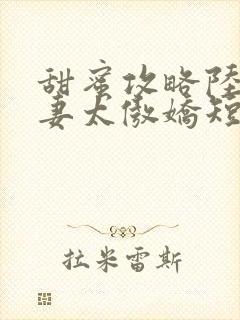 甜蜜攻略陸
妻太傲嬌短
拉米雷斯